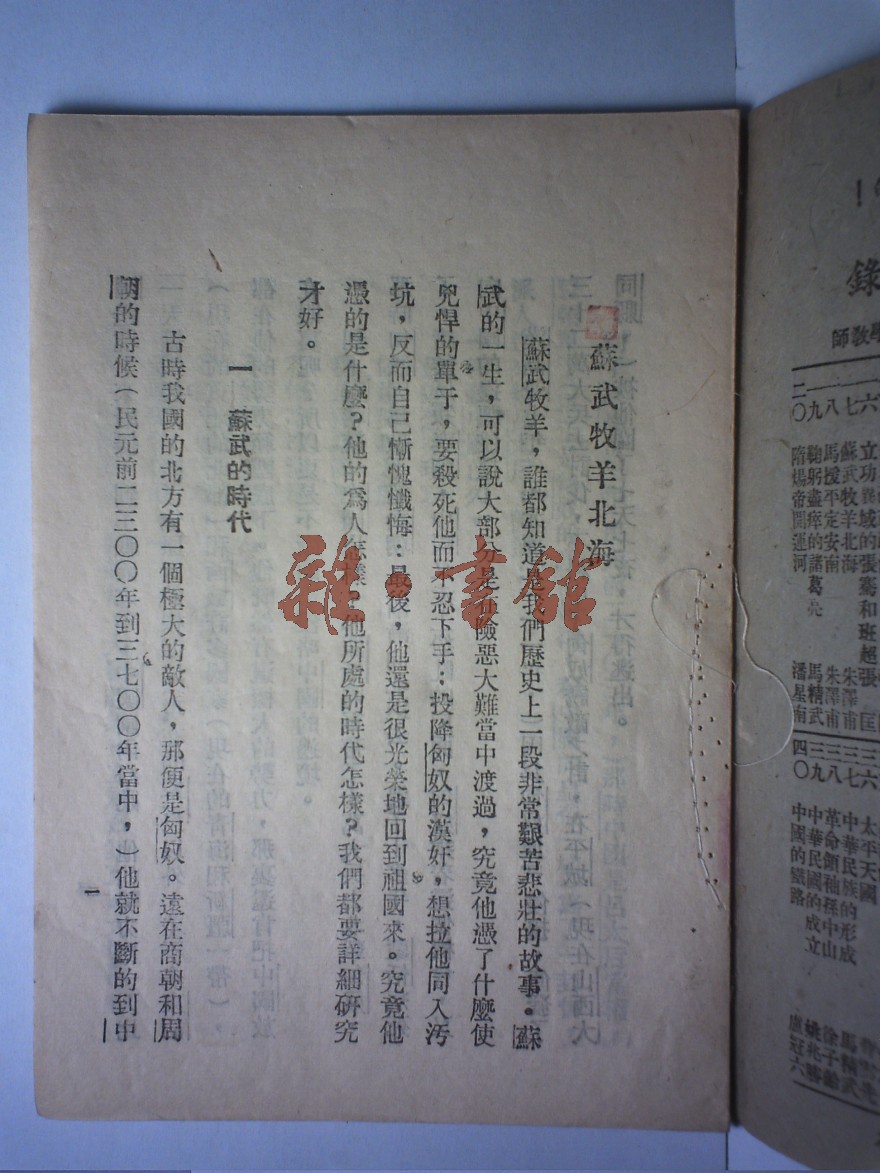 錄
一六 立功異域的張騫和班超 張匡
一七 蘇武牧羊北海 朱澤甫
一八 馬援平定安南 朱澤甫
一九 鞠躬盡瘁的諸葛亮 馬精武
二〇 隋煬帝開運河 潘星南
三六 太平天國
三七 中華民族的形成 馬精武
三八 革命領袖孫中山
三九 中華民國的成立
四〇 中國的鐵路 盧冠六
蘇武牧羊北海
蘇武牧羊，誰都知道是我們歷史上一段非常艱苦悲壯的故事。蘇
武的一生，可以說大部分是在險惡大難當中渡過，究竟他憑了什麼使
兇悍的單于，要殺死他而不忍下手：投降匈奴的漢奸，想拉他同入污
坑，反而自己慚愧懺悔：最後，他還是很光榮地回到祖國來。究竟他
憑的是什麼？他的爲人怎樣？他所處的時代怎樣？我們都要詳細研究
才好。
一 蘇武的時代
古時我國的北方有一個極大的敵人，那便是匈奴。遠在商朝和周
朝的時候（民元前二三〇〇年到三七〇〇年當中，）他就不斷的到中
一
雜·書館